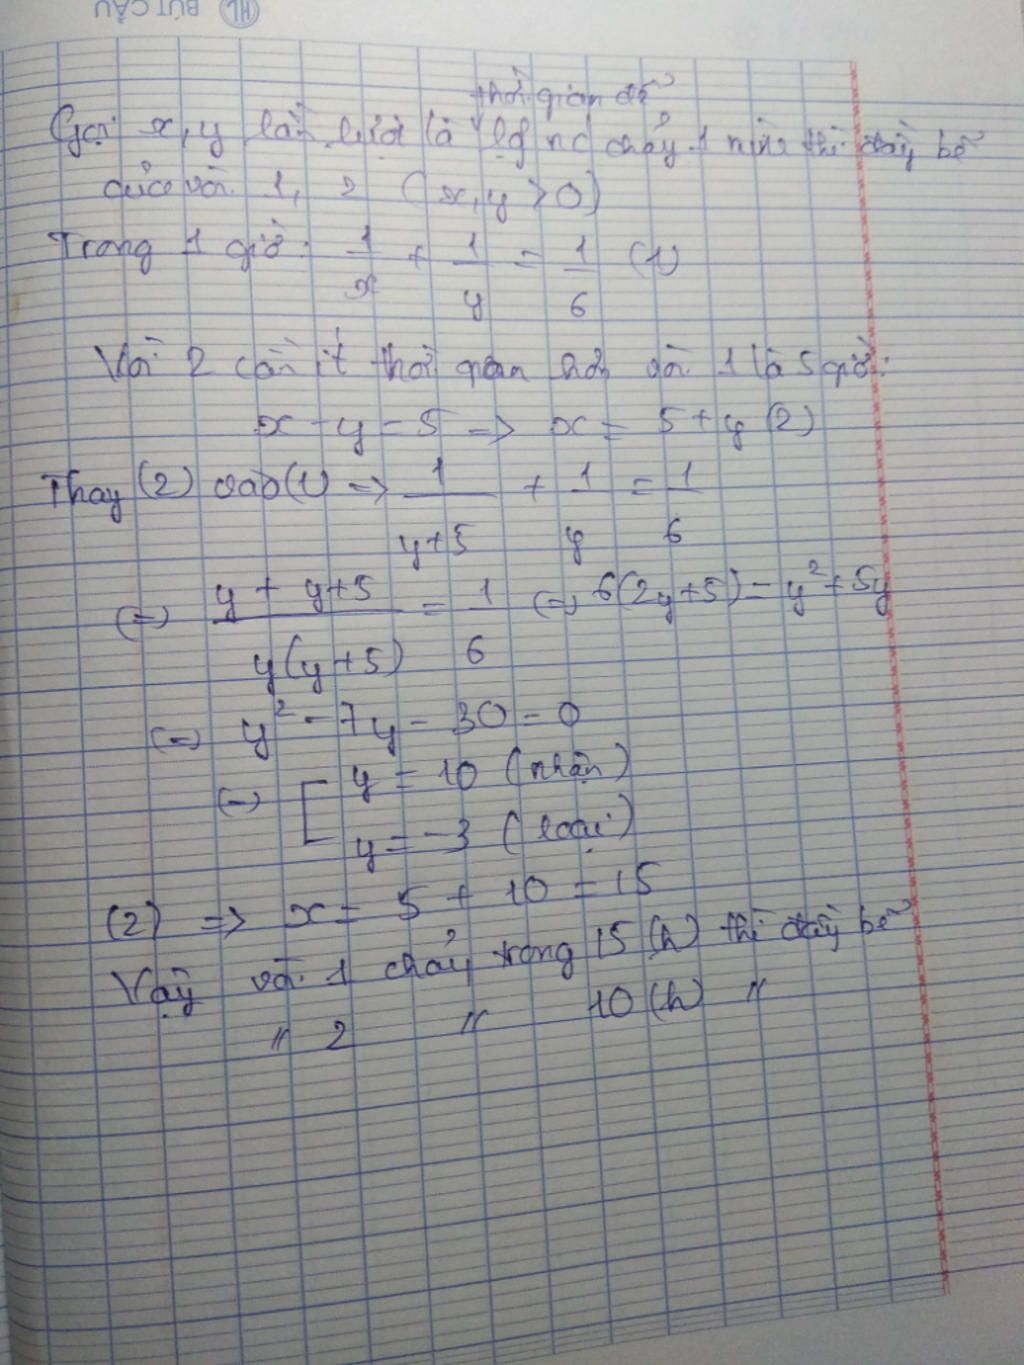 HL BÚT CẦU
thời gian để
Gọi x, y lần lượt là lg nc chảy 1 mình thì đầy bể
của vòi 1, 2 (x, y > 0)
Trong 1 giờ: 1/x + 1/y = 1/6 (1)
Vòi 2 cần ít thời gian hơn vòi 1 là 5 giờ:
x - y = 5 => x = 5 + y (2)
Thay (2) vào (1) => 1/(y+5) + 1/y = 1/6
(=) (y + y+5)/(y(y+5)) = 1/6 (=) 6(2y+5) = y² + 5y
(=) y² - 7y - 30 = 0
(=) [ y = 10 (nhận)
y = -3 (loại)
(2) => x = 5 + 10 = 15
Vậy vòi 1 chảy trong 15 (h) thì đầy bể
" 2 " 10 (h) "